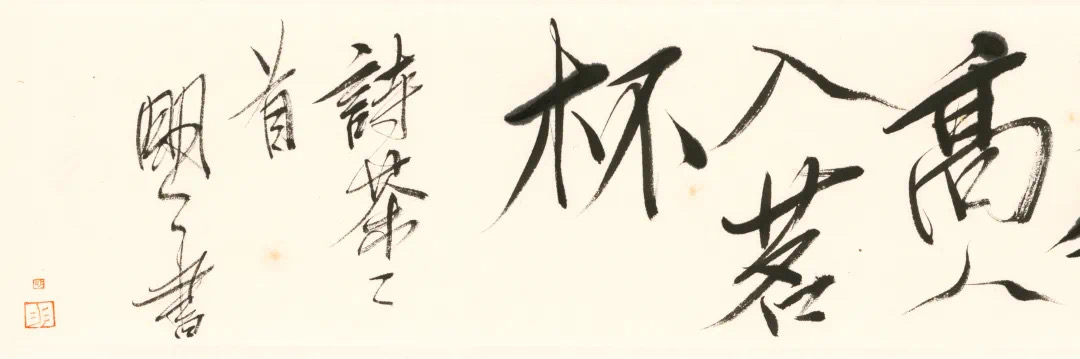 高人
入茗
杯
詩茶二
首
明書